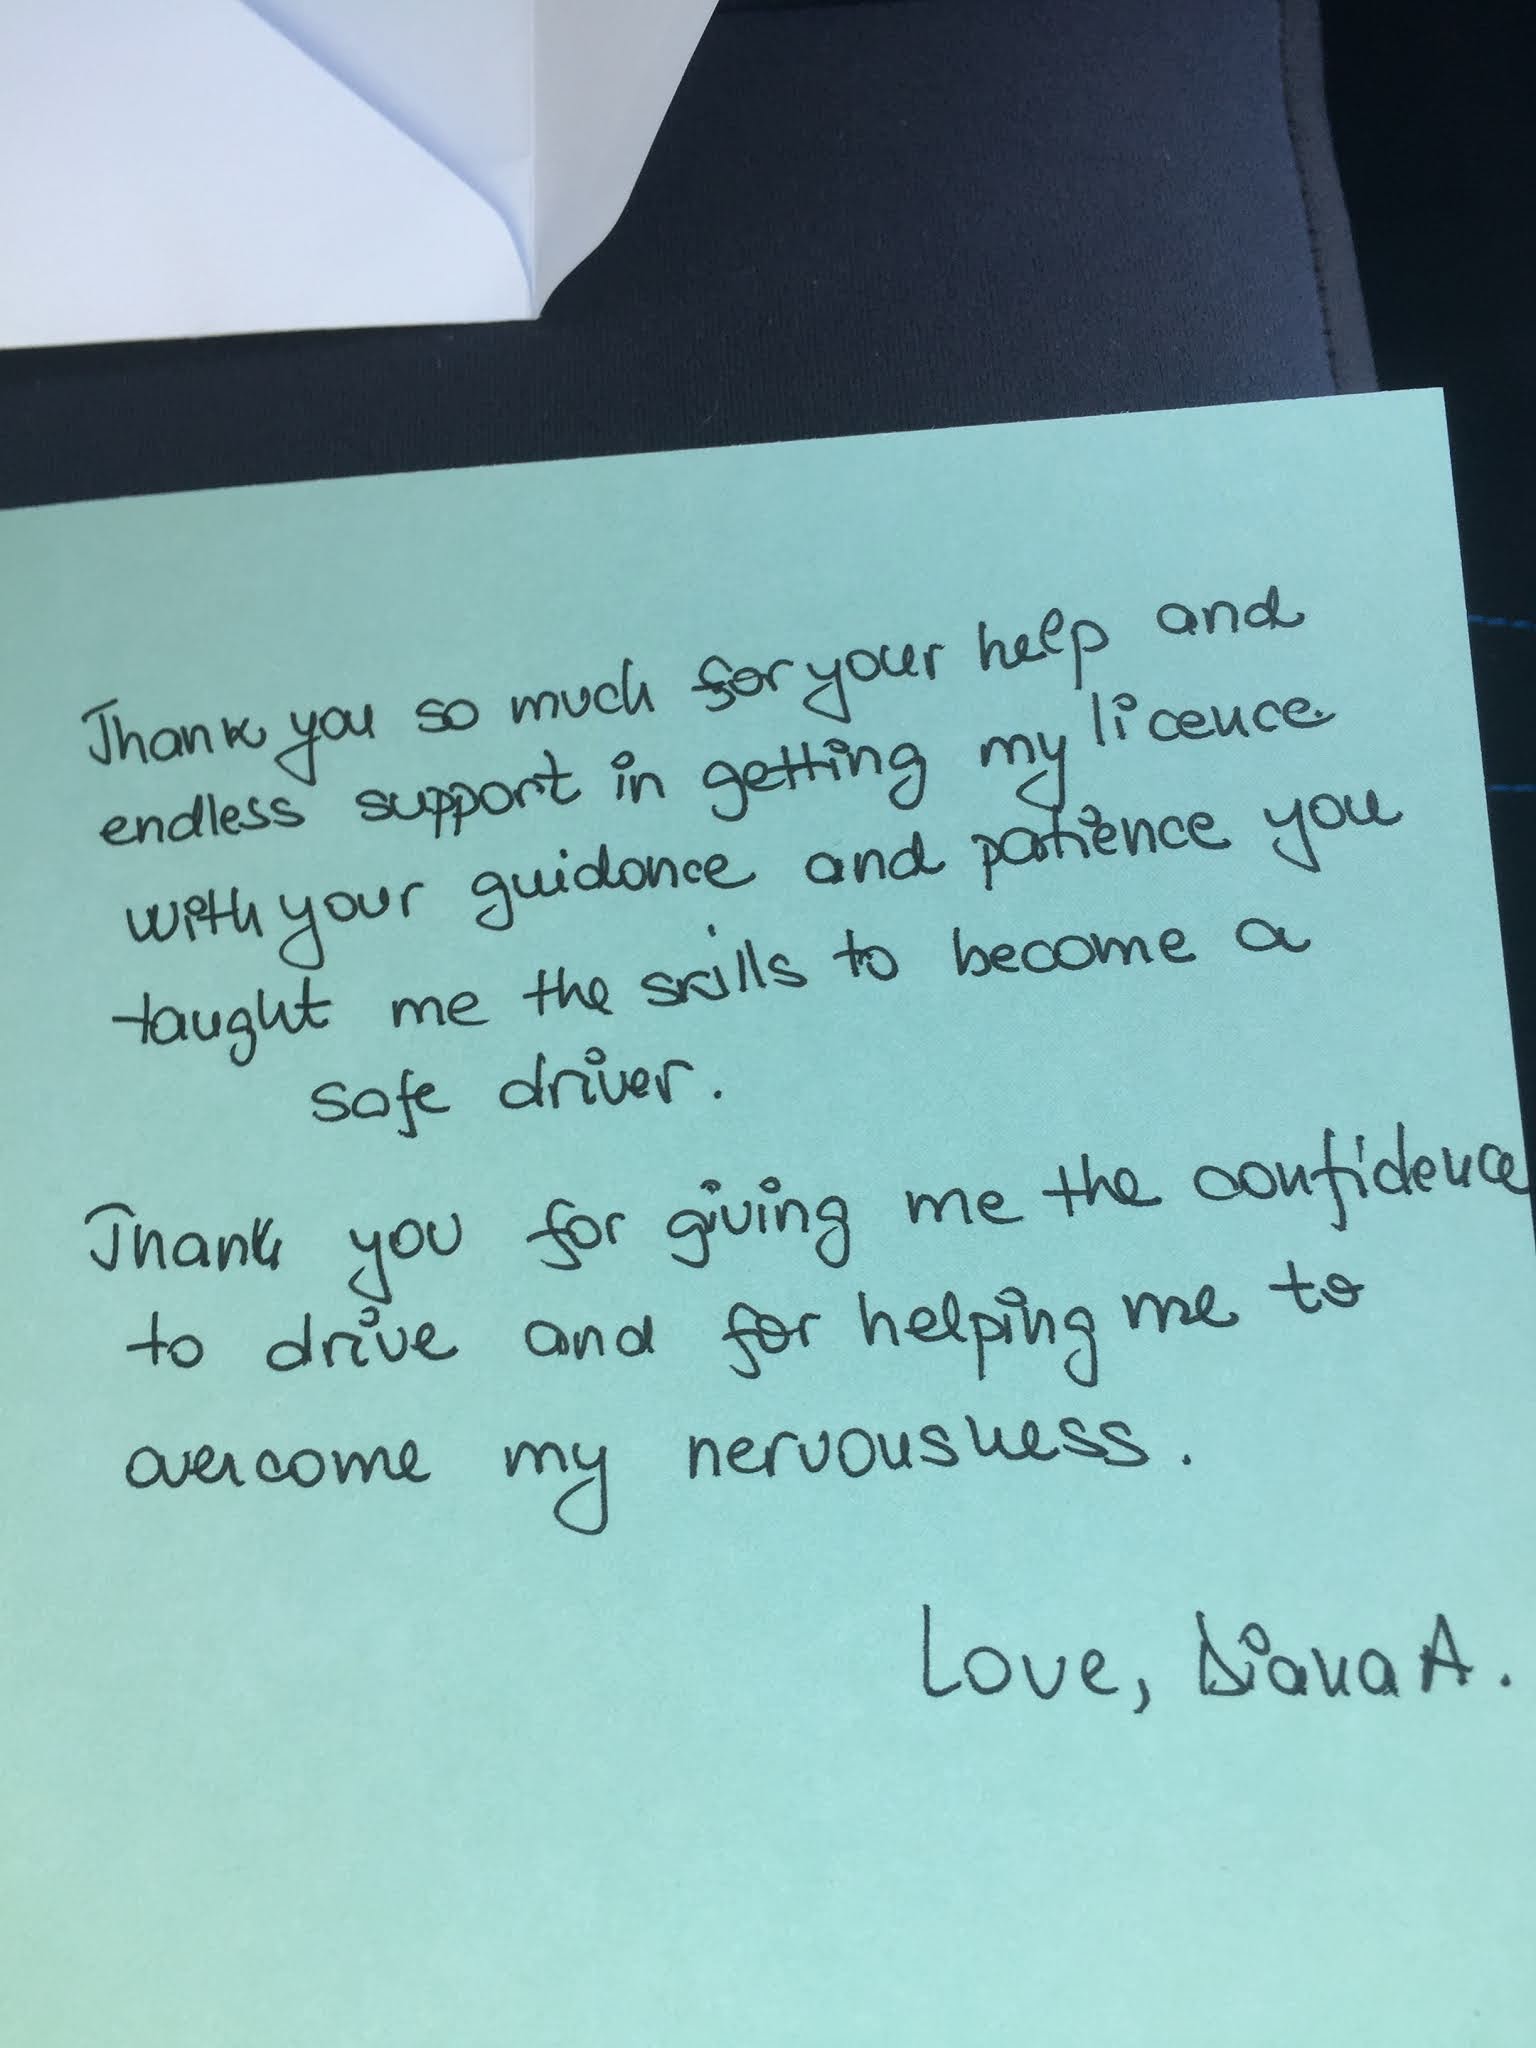 Thank you so much for your help and
endless support in getting my licence.
with your guidance and patience you
taught me the skills to become a
safe driver.
Thank you for giving me the confidence
to drive and for helping me to
overcome my nervousness.
Love, Diana A.